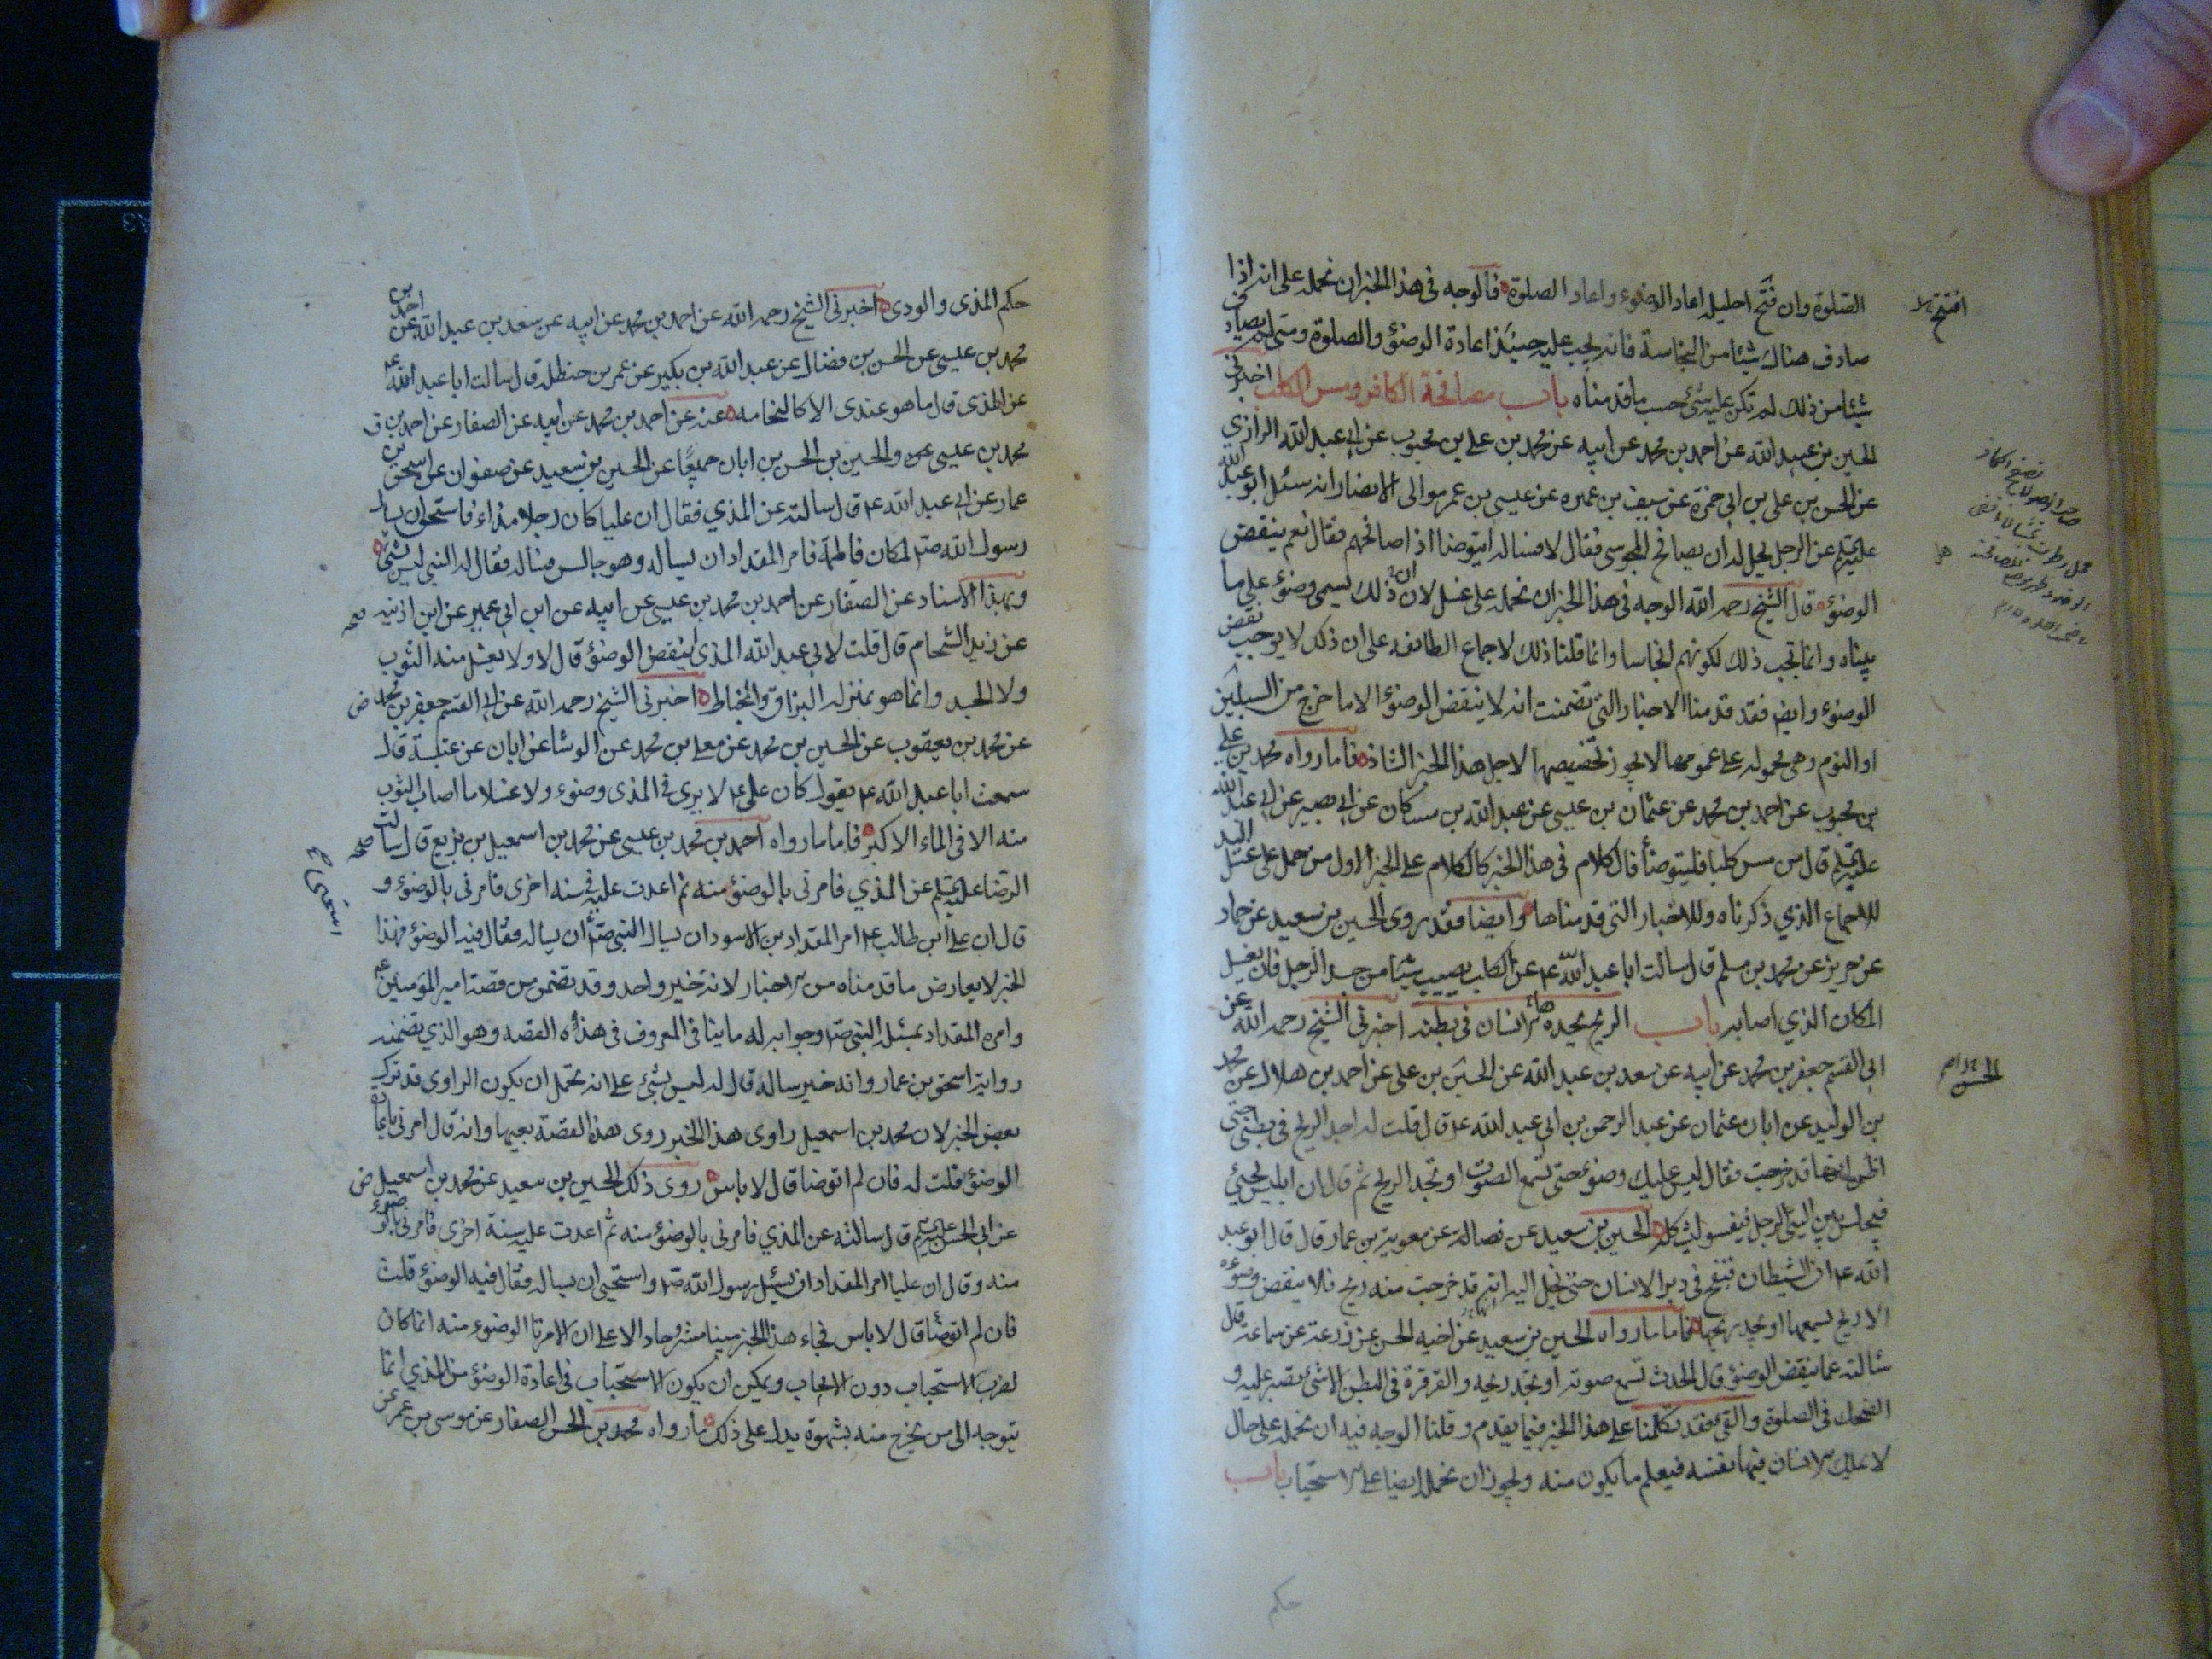 الصلوة وان فتح احليله اعاد الوضوء واعاد الصلوة فالوجه فى هذا الخبران نحمله على انه اذا
صادف هناك شيئا من النجاسة فانه يجب عليه حينئذ اعادة الوضوء والصلوة ومتى لم يصادف
شيئا من ذلك لم تكن عليه شئ حسب ما قدمناه باب مصافحة الكافر ومس الكلب اخبرنى
الحسين بن عبيد الله عن احمد بن محمد عن ابيه عن محمد بن على بن محبوب عن ابى عبد الله الرازي
عن الحسن بن على بن ابى حمزة عن سيف بن عميره عن عيسى بن عمر موالى الانصار انه سئل ابو عبد الله
عليه السلم عن الرجل يحل له ان يصافح المجوسى فقال لا فساله ايتوضا اذا صافحهم فقال نعم ينقض
الوضوء قال الشيخ رحمه الله الوجه فى هذا الخبر ان نحمله على غسل لان ذلك يسمى وضوء على ما
بيناه وانما تجب ذلك لكونهم انجاسا وانما قلنا ذلك لاجماع الطائفه على ان ذلك لا يوجب نقض
الوضوء وايضا فقد قدمنا الاخبار التى تضمنت انه لا ينقض الوضوء الا ما خرج من السبيلين
او النوم وهى محموله على عمومها لا يجوز تخصيصها لاجل هذا الخبر الشاذ فاما ما رواه محمد بن على
بن محبوب عن احمد بن محمد عن عثمان بن عيسى عن عبد الله بن مسكان عن ابى بصير عن ابى عبد الله
عليه السلم قال من مس كلبا فليتوضأ فالكلام فى هذا الخبر كالكلام على الخبر الاول من حمله على غسل اليد
للاجماع الذي ذكرناه وللاخبار التى قدمناها وايضا فقد روى الحسين بن سعيد عن حماد
عن حريز عن محمد بن مسلم قال سالت ابا عبد الله ع عن الكلب يصيب شيئا من جسد الرجل قال يغسل
المكان الذي اصابه باب الريح يجده الانسان فى بطنه اخبرنى الشيخ رحمه الله عن
ابى القسم جعفر بن محمد عن ابيه عن سعد بن عبد الله عن الحسين بن على عن احمد بن هلال عن محمد
بن الوليد عن ابان عثمان عن عبد الرحمن بن ابى عبد الله ع قال قلت له اجد الريح فى بطنى حتى
اظن انها قد خرجت فقال ليس عليك وضوء حتى تسمع الصوت او تجد الريح ثم قال ان ابليس يجيئ
فيجلس بين اليتى الرجل فيفسو ليشككه الحسين بن سعيد عن فضاله عن معوية بن عمار قال قال ابو عبد
الله ع ان الشيطان ينفخ فى دبر الانسان حتى يخيل اليه انه قد خرجت منه ريح فلا ينقض وضوءه
الا ريح يسمعها او يجد ريحها فاما ما رواه الحسين بن سعيد عن اخيه الحسن عن زرعة عن سماعة قال
سالته عما ينقض الوضوء قال الحدث تسمع صوته او تجد ريحه والقرقرة فى البطن الا شئ تصبر عليه و
الضحك فى الصلوة والقئ فقد تكلمنا على هذا الخبر فيما تقدم وقلنا الوجه فيه ان نحمله على حال
لا يملك الانسان فيها نفسه فيعلم ما يكون منه ويجوز ان نحمله ايضا على الاستحباب باب
حكم
حكم المذى والودى اخبرنى الشيخ رحمه الله عن احمد بن محمد عن ابيه عن سعد بن عبد الله عن احمد بن
محمد بن عيسى عن الحسن بن فضال عن عبد الله بن بكير عن عمر بن حنظله قال سالت ابا عبد الله ع
عن المذى قال ما هو عندى الا كالنخامه عنه عن احمد بن محمد عن ابيه عن الصفار عن احمد بن
محمد بن عيسى والحسين بن الحسن بن ابان جميعا عن الحسين بن سعيد عن صفوان عن اسحق بن
عمار عن ابى عبد الله ع قال سالته عن المذي فقال ان عليا كان رجلا مذاء فاستحى ان يسال
رسول الله ص لمكان فاطمة فامر المقداد ان يساله وهو جالس فساله فقال له النبى ليس بشئ
وبهذا الاسناد عن الصفار عن احمد بن محمد بن عيسى عن ابيه عن ابن ابى عمير عن ابن اذينه
عن زيد الشحام قال قلت لابى عبد الله المذى اينقض الوضوء قال لا ولا يغسل منه الثوب
ولا الجسد وانما هو بمنزله البزاق والمخاط اخبرنى الشيخ رحمه الله عن ابى القسم جعفر بن محمد
عن محمد بن يعقوب عن الحسين بن محمد عن معلى بن محمد عن الوشا عن ابان عن عنبسة قال
سمعت ابا عبد الله ع يقول كان على ع لا يرى فى المذى وضوء ولا غسلا ما اصاب الثوب
منه الا فى الماء الاكبر فاما ما رواه احمد بن محمد بن عيسى عن محمد بن اسمعيل بن بزيع قال سالت
الرضا عليه السلم عن المذي فامرنى بالوضوء منه ثم اعدت عليه فى سنه اخرى فامرنى بالوضوء و
قال ان على ابن طالب ع امر المقداد بن الاسود ان يسال النبى ص ان يساله فقال فيه الوضوء فهذا
الخبر لا يعارض ما قدمناه من الاخبار لانه خبر واحد وقد تضمن من قصة امير المؤمنين ع
وامره المقداد بمسئلة النبى ص وجوابه له ما ينافى المعروف فى هذه القصه وهو الذي تضمنه
رواية اسحق بن عمار وانه خير ساله قال له ليس بشئ على انه تحتمل ان يكون الراوى قد ترك
بعض الخبر لان محمد بن اسمعيل راوى هذا الخبر روى هذه القصة بعينها وانه قال امرنى باعادة
الوضوء قلت له فان لم اتوضا قال لا باس روى ذلك الحسين بن سعيد عن محمد بن اسمعيل
عن ابى الحسن عليه السلم قال سالته عن المذي فامرنى بالوضوء منه ثم اعدت عليه سنة اخرى فامرنى بالوضوء
منه وقال ان عليا امر المقداد ان يسئل رسول الله ص واستحيى ان يساله فقال فيه الوضوء قلت
فان لم اتوضأ قال لا باس فجاء هذا الخبر مبينا مشروحا دالا على ان الامر بالوضوء منه انما كان
لضرب الاستحباب دون الايجاب ويمكن ان يكون الاستحباب فى اعادة الوضوء من المذي انما
يتوجه الى من يخرج منه بشهوة يدل على ذلك ما رواه محمد بن الحسن الصفار عن موسى بن عمر عن